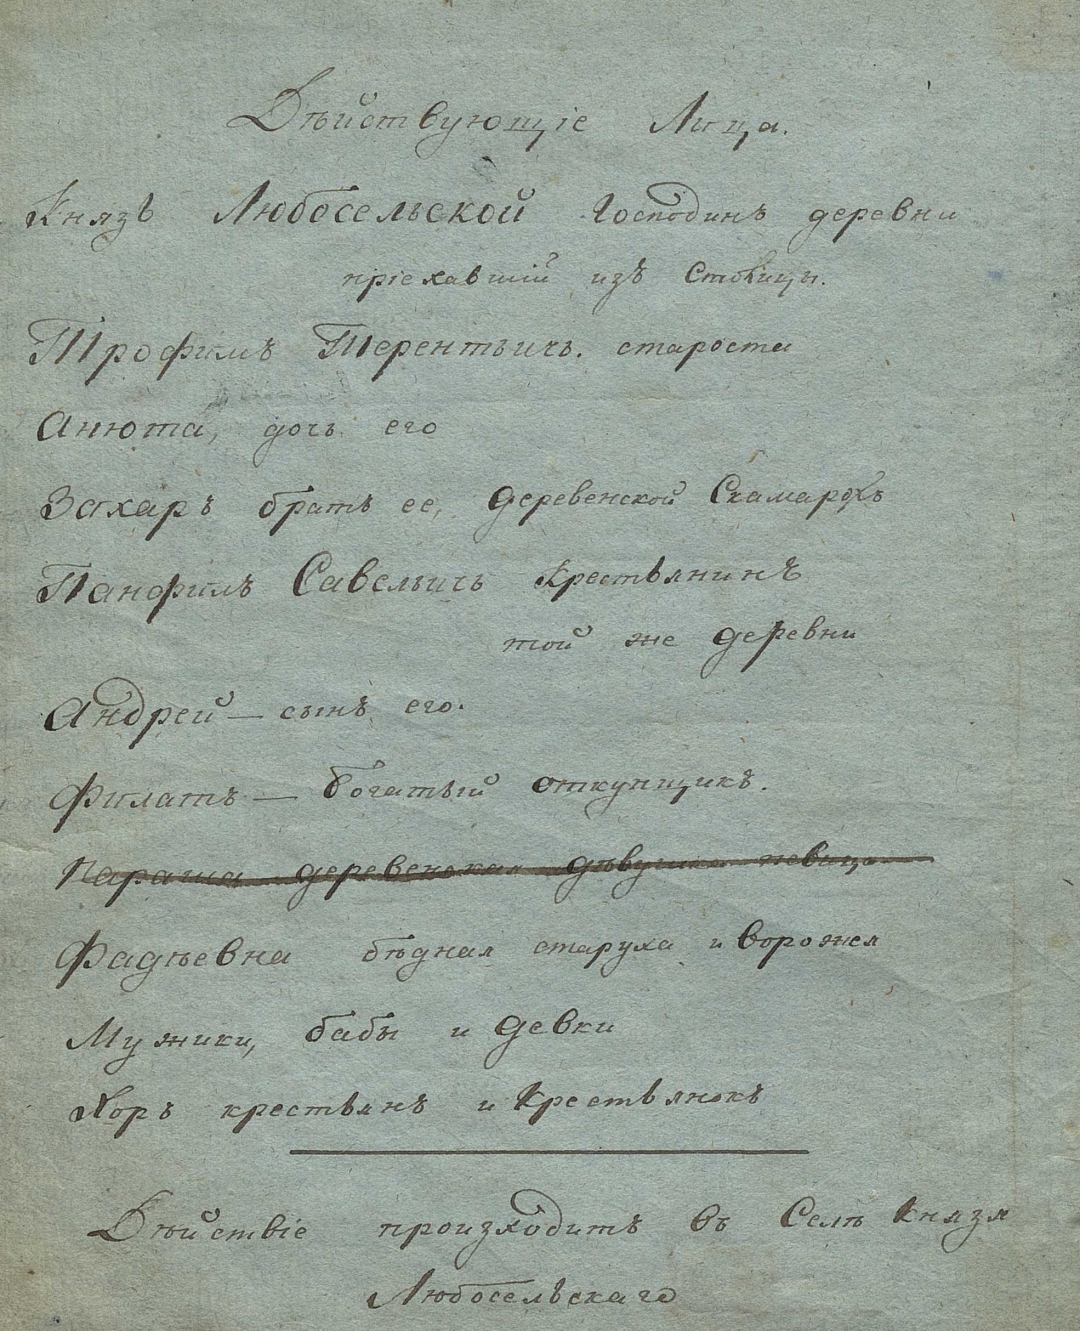 Дѣйствующіе Лица.
Князь Любосельской Господинъ деревни
пріехавшій изъ Столицы.
Трофимъ Терентьичь. староста
Анюта, дочь его
Захаръ братъ ее, деревенской Скамарохъ
Панфилъ Савельичь Крестьянинъ
той же деревни
Андрей — сынъ его.
Филатъ — богатый откупщикъ.
Параша деревенская дѣвушка певица
Фадѣевна бѣдная старуха и ворожея
Мужики, бабы и девки
Хоръ крестьянъ и Крестьянокъ
Дѣйствіе происходитъ въ Селѣ Князя
Любосельскаго